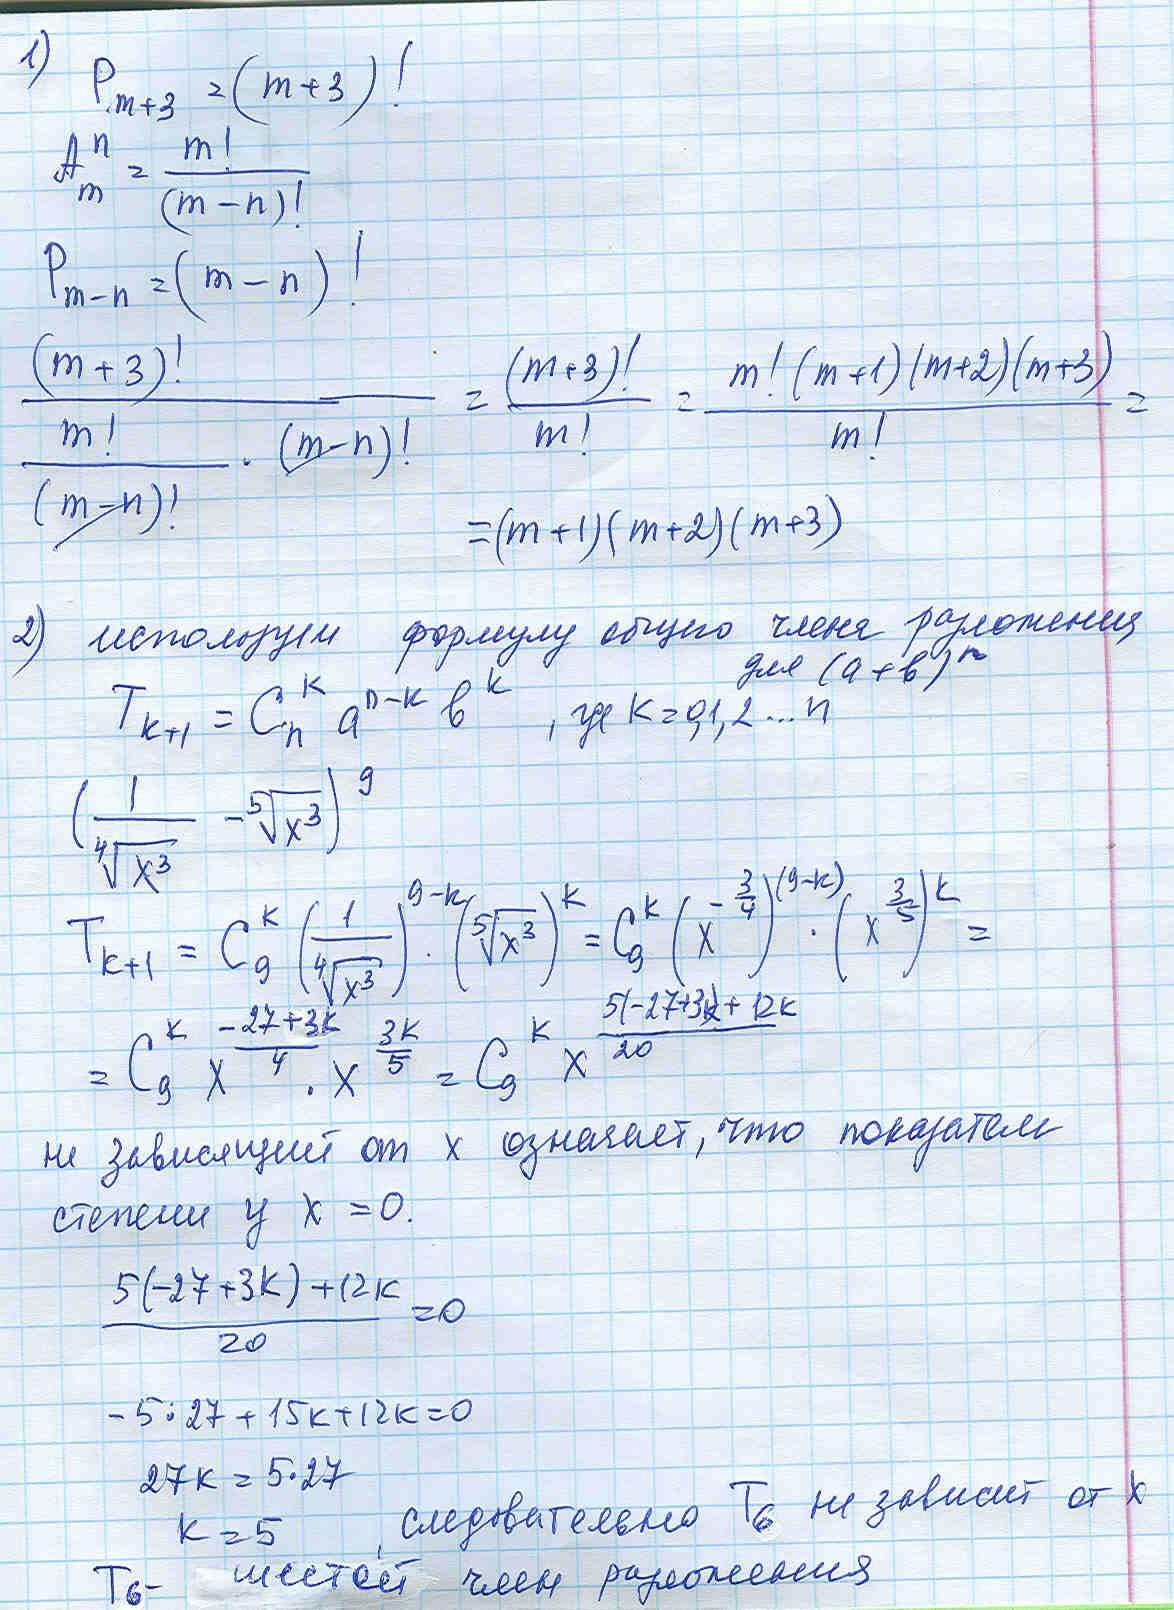 1) P_{m+3} = (m+3)!
A_m^n = m! / (m-n)!
P_{m-n} = (m-n)!
(m+3)! / (m!/(m-n)! · (m-n)!) = (m+3)! / m! = m! (m+1)(m+2)(m+3) / m! =
= (m+1)(m+2)(m+3)
2) используем формулу общего члена разложения
для (a+b)^n
T_{k+1} = C_n^k a^{n-k} b^k , где k=0,1,2...n
(1/⁴√x³ - ⁵√x³)^9
T_{k+1} = C_9^k (1/⁴√x³)^{9-k} · (⁵√x³)^k = C_9^k (x^{-3/4})^{(9-k)} · (x^{3/5})^k =
= C_9^k x^{(-27+3k)/4} · x^{3k/5} = C_9^k x^{(5(-27+3k)+12k)/20}
не зависящий от x означает, что показатель
степени у x = 0.
(5(-27+3k)+12k)/20 = 0
-5·27+15k+12k=0
27k = 5·27
k = 5 , следовательно T_6 не зависит от x
T_6 - шестой член разложения